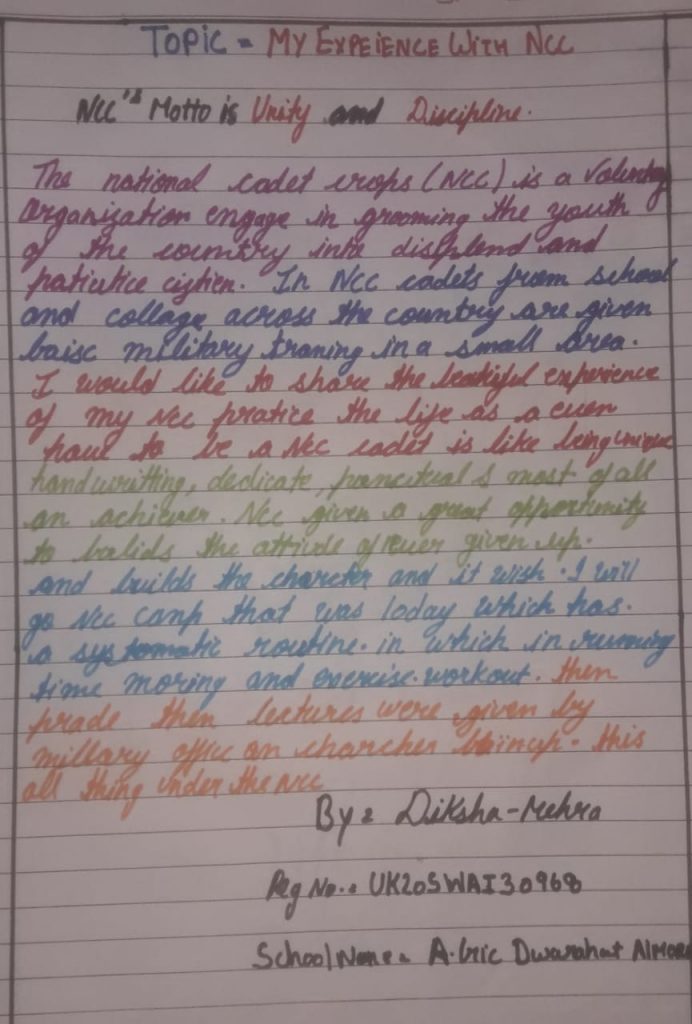 TOPIC = MY EXPEIENCE WITH NCC
NCC's Motto is Unity and Discipline.
The national cadet crops (NCC) is a
Organization engage in grooming the youth
of the country into displend and
patiutice citizen. In NCC cadets from school
and collage across the country are given
baisc military traning in a small area.
I would like to share the experience
of my NCC pratice the life as a even
have to be a NCC cadet is like being unique
handwritting, dedicate, & most of all
an achiever. NCC given a great opportunity
to the attitide of ever given up.
and builds the charcter and it wish. I will
go NCC camp that was today which has.
a systomatic routine. in which in running
time moring and exercise workout. then
prade then lectures were given by
millary offic on charcher this
all thing under the NCC
By = Diksha-Mehra
Reg No. = UK20SWAI30968
School Name = Dwarahat